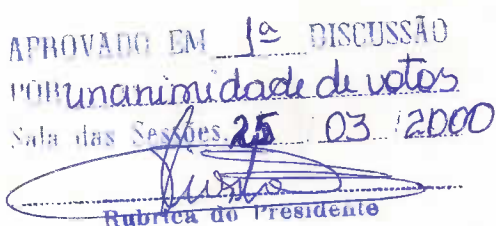 APROVADO EM 1ª DISCUSSÃO
POR unanimidade de votos
Sala das Sessões, 25 / 03 / 2000
Rubrica do Presidente